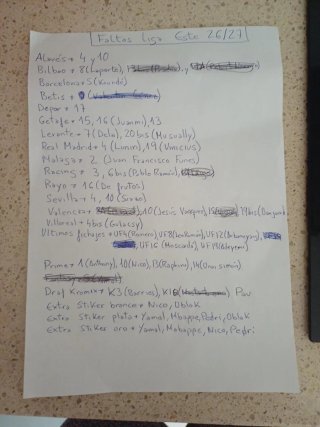 Faltas Liga Este 26/27
Alavés + 4 y 10
Bilbao + 8 (Laporte), y
Barcelona + 5 (Koundé)
Betis +
Depor + 17
Getafe + 15, 16 (Juanmi) 13
Levante + 7 (Dela), 20 bis (Musually)
Real Madrid + 4 (Lunin), 19 (Vinicius
Malaga + 2 (Juan Francisco Funes)
Racing + 3, 6 bis (Pablo Ramón),
Rayo + 16 (De frutos)
Sevilla + 4, 10 (Sirao)
Valencia + 10 (Jesús Vazquez), 19 bis
Villareal + 4 bis
Ultimos fichajes + UF4 (Romero) UF8 UF12
UF16 (Moscardó) UF19 (Adeyemi)
Prime + 1 (Anthony), 10 (Nico), 13 (Raphina), 14 (Unai simón)
Draf Kromix + K3 (Barrios), K10 Pau
Extra Stiker bronce + Nico, Oblak
Extra Stiker plata + Yamal, Mbappe, Pedri, Oblak
Extra Stiker oro + Yamal, Mbappe, Nico, Pedri